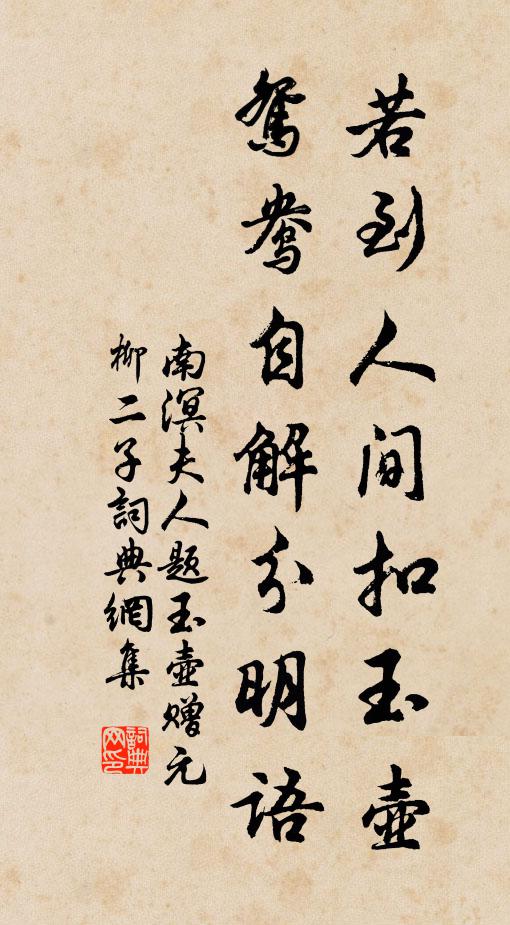 若到人间扣玉壶
鸳鸯自解分明语
南溟夫人题玉壶赠元
柳二子詞典網集
詞典网印